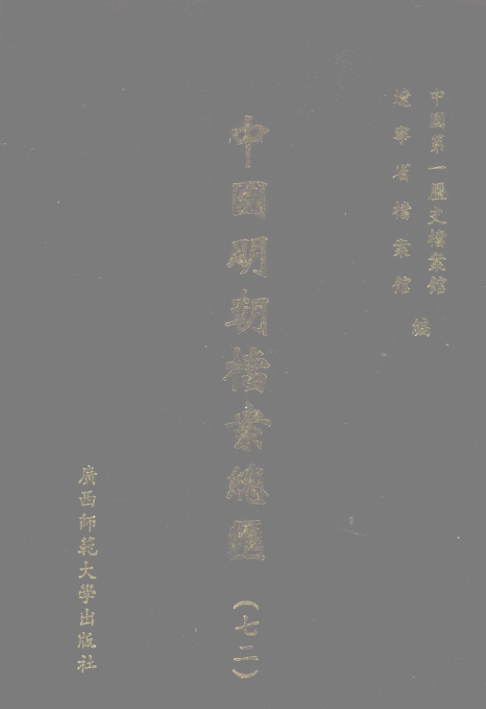 中國第一歷史檔案館
遼寧省檔案館
編
中國明朝檔案總匯
(七二)
廣西師範大學出版社